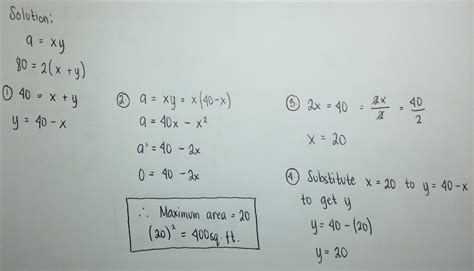 Solution:
a = xy
80 = 2(x + y)
① 40 = x + y
y = 40 - x
② a = xy = x(40-x)
a = 40x - x²
a' = 40 - 2x
0 = 40 - 2x
∴ Maximum area = 20
(20)² = 400 sq. ft.
③ 2x = 40 = 2x/2 = 40/2
x = 20
④ Substitute x = 20 to y = 40 - x
to get y
y = 40 - (20)
y = 20